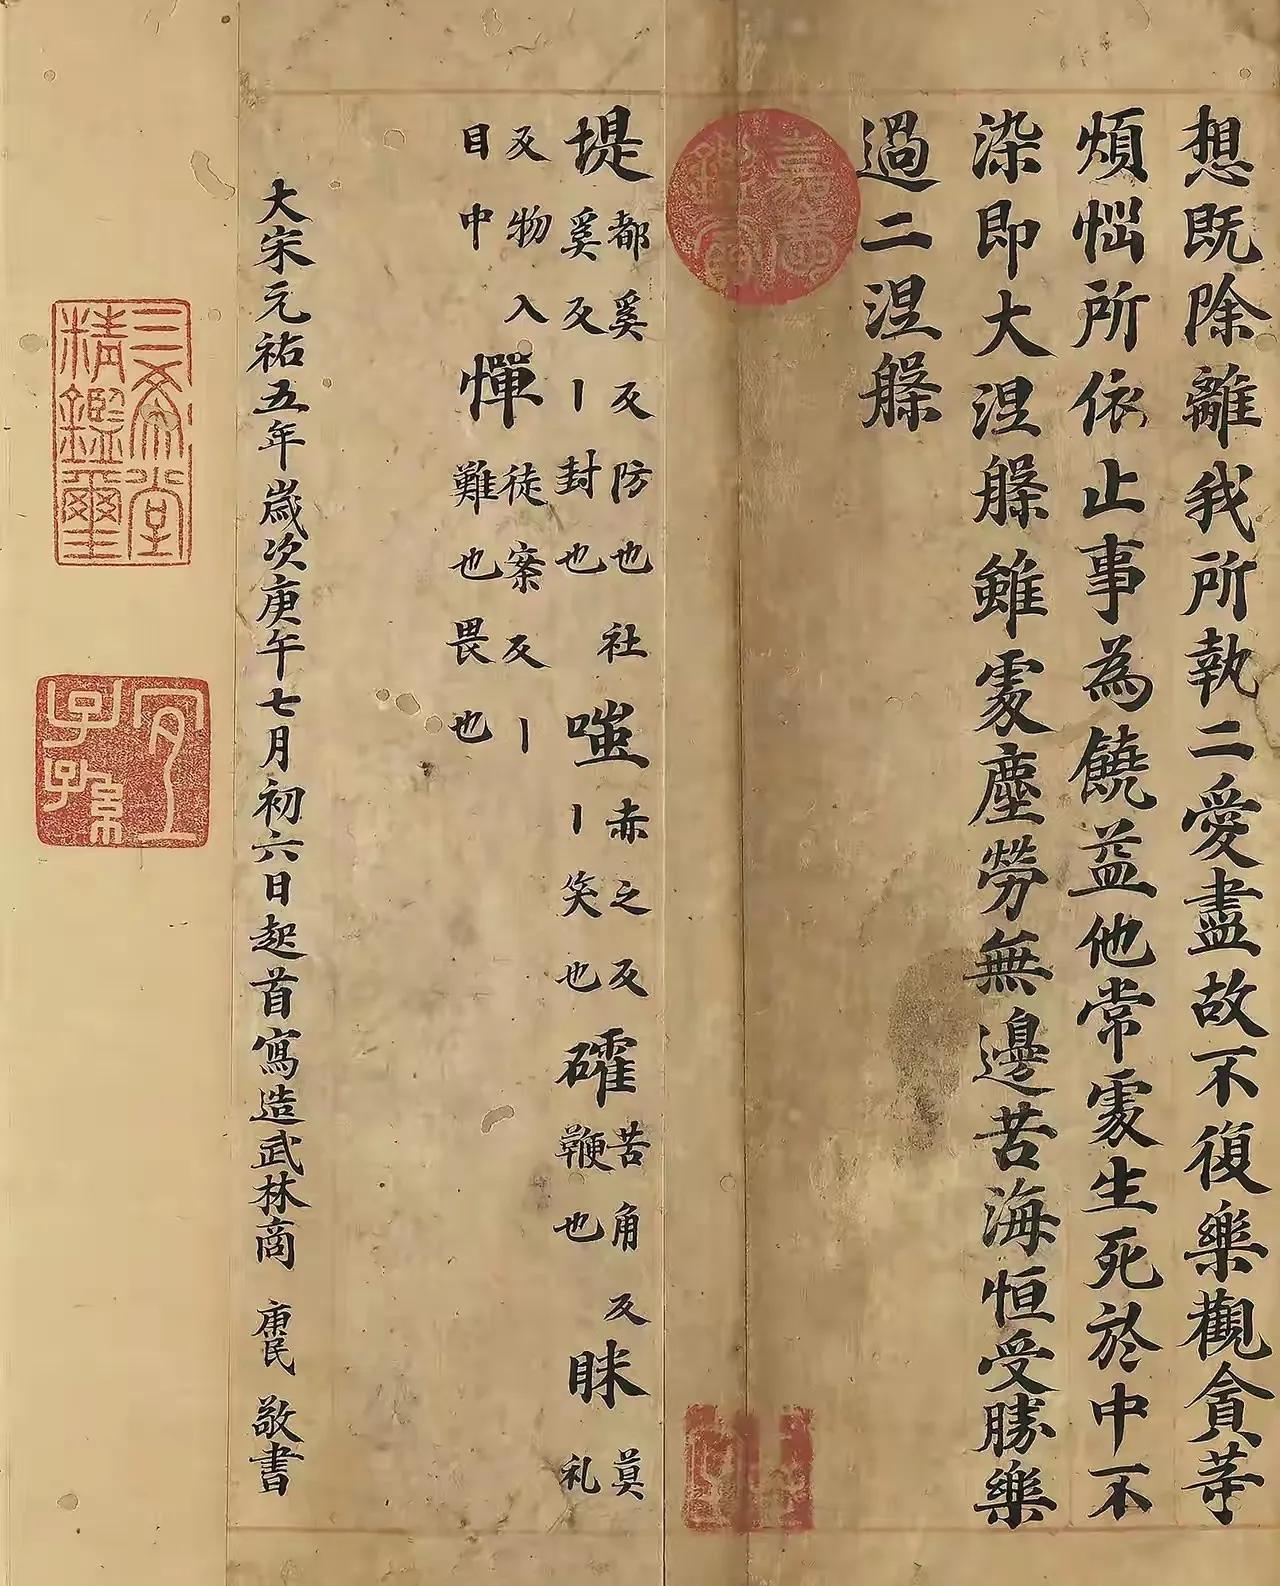 想既除離我所執二愛盡故不復樂觀貪等
煩惱所依止事為饒益他常處生死於中不
染即大涅槃雖處塵勞無邊苦海恒受勝樂
過二涅槃
嘉慶鑑賞
堤
都奚反防也社
奚反丨封也
嗤
赤之反
丨笑也
礭
苦角反
鞭也
眯
莫礼
反物入
目中
憚
徒案反丨
難也畏也
大宋元祐五年歲次庚午七月初六日起首寫造武林商 庚民 敬書
三希堂精鑑璽
宜子孫